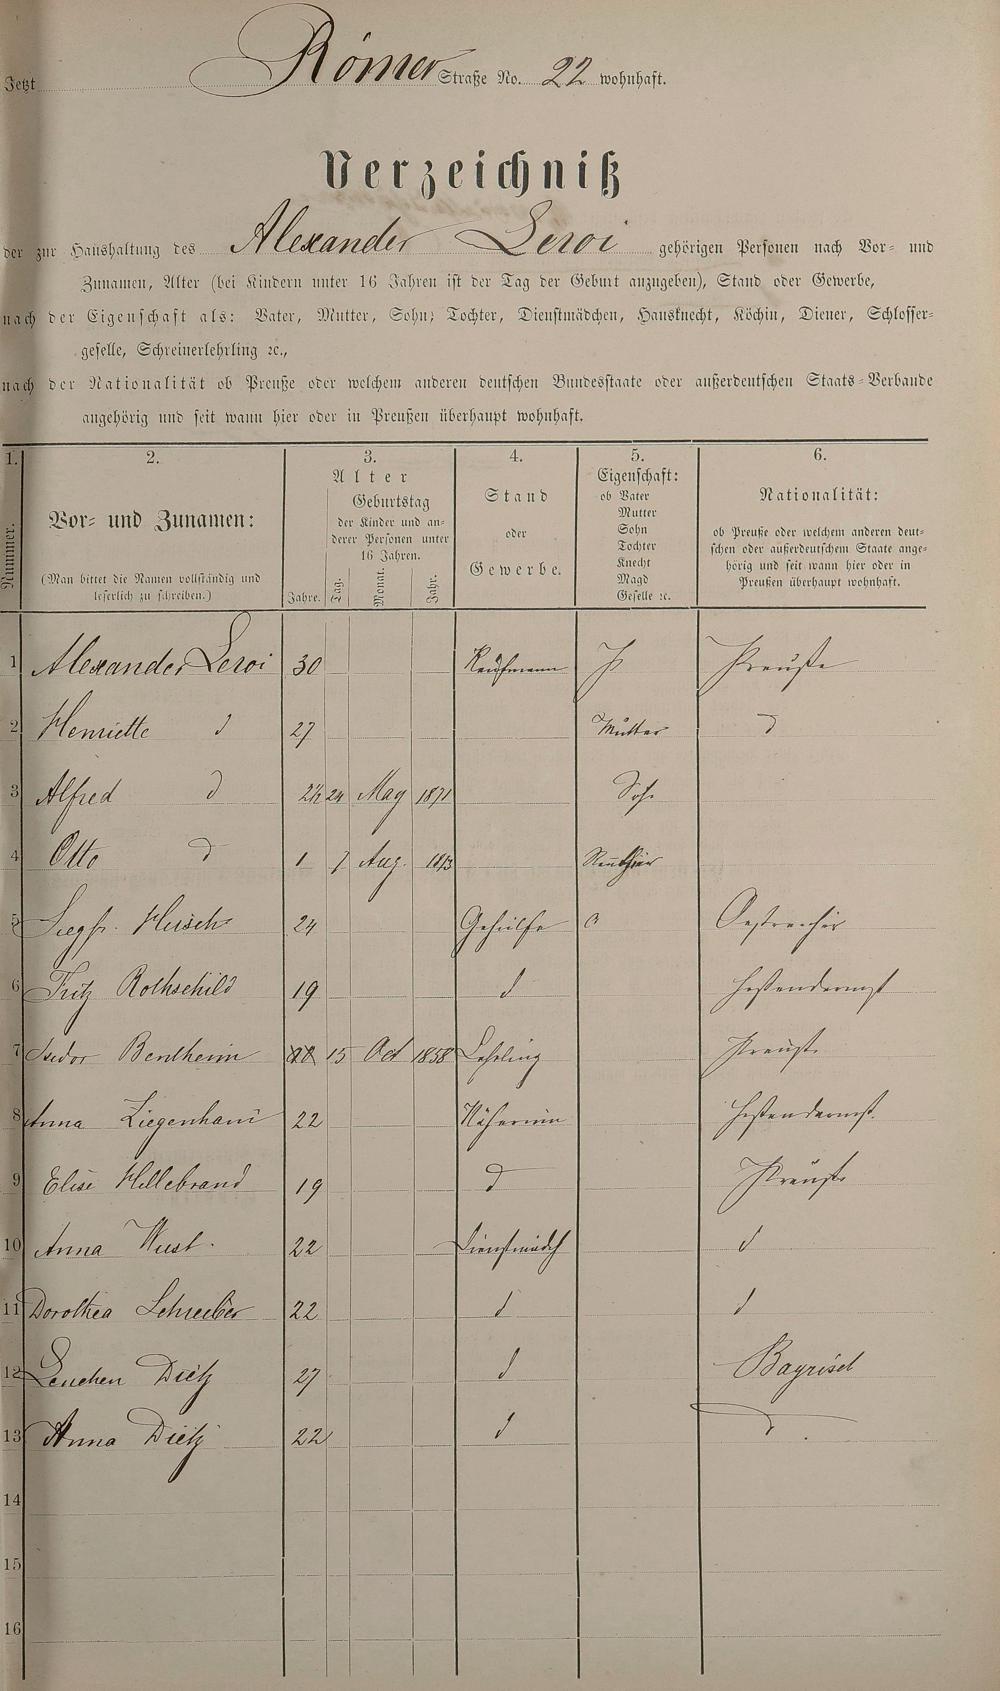 Jetzt Römer Straße No. 22 wohnhaft.
Verzeichniß
der zur Haushaltung des Alexander Leroi gehörigen Personen nach Vor- und
Zunamen, Alter (bei Kindern unter 16 Jahren ist der Tag der Geburt anzugeben), Stand oder Gewerbe,
nach der Eigenschaft als: Vater, Mutter, Sohn, Tochter, Dienstmädchen, Hausknecht, Köchin, Diener, Schlosser-
geselle, Schreinerlehrling ꝛc.,
nach der Nationalität ob Preuße oder welchem anderen deutschen Bundesstaate oder außerdeutschen Staats-Verbande
angehörig und seit wann hier oder in Preußen überhaupt wohnhaft.
1. 2. 3. 4. 5. 6.
Nummer.
Vor- und Zunamen:
(Man bittet die Namen vollständig und
leserlich zu schreiben.)
Alter
Jahre.
Geburtstag
der Kinder und an-
derer Personen unter
16 Jahren.
Tag. Monat. Jahr.
Stand
oder
Gewerbe.
Eigenschaft:
ob Vater
Mutter
Sohn
Tochter
Knecht
Magd
Geselle ꝛc.
Nationalität:
ob Preuße oder welchem anderen deut-
schen oder außerdeutschem Staate ange-
hörig und seit wann hier oder in
Preußen überhaupt wohnhaft.
1 Alexander Leroi 30 Kaufmann Preuße
2 Henriette d 27 Mutter d
3 Alfred d 2½ 24 May 1871 Sohn
4 Otto d 1 7 Aug.
5 Siegfr. Hirsch 24 Gehülfe Oestreicher
6 Fritz Rothschild 19 d Hessendarmst
7 Isidor Bentheim 15 Oct 1858 Lehrling Preuße
8 Anna Ziegenhain 22 Näherinn Hessendarmst.
9 Elise Hillebrand 19 d Preuße
10 Anna Wust. 22 Dienstmädch d
11 Dorothea Schreiber 22 d d
12 Lenchen Dietz 27 d Bayrisch
13 Anna Dietz 22 d d
14
15
16